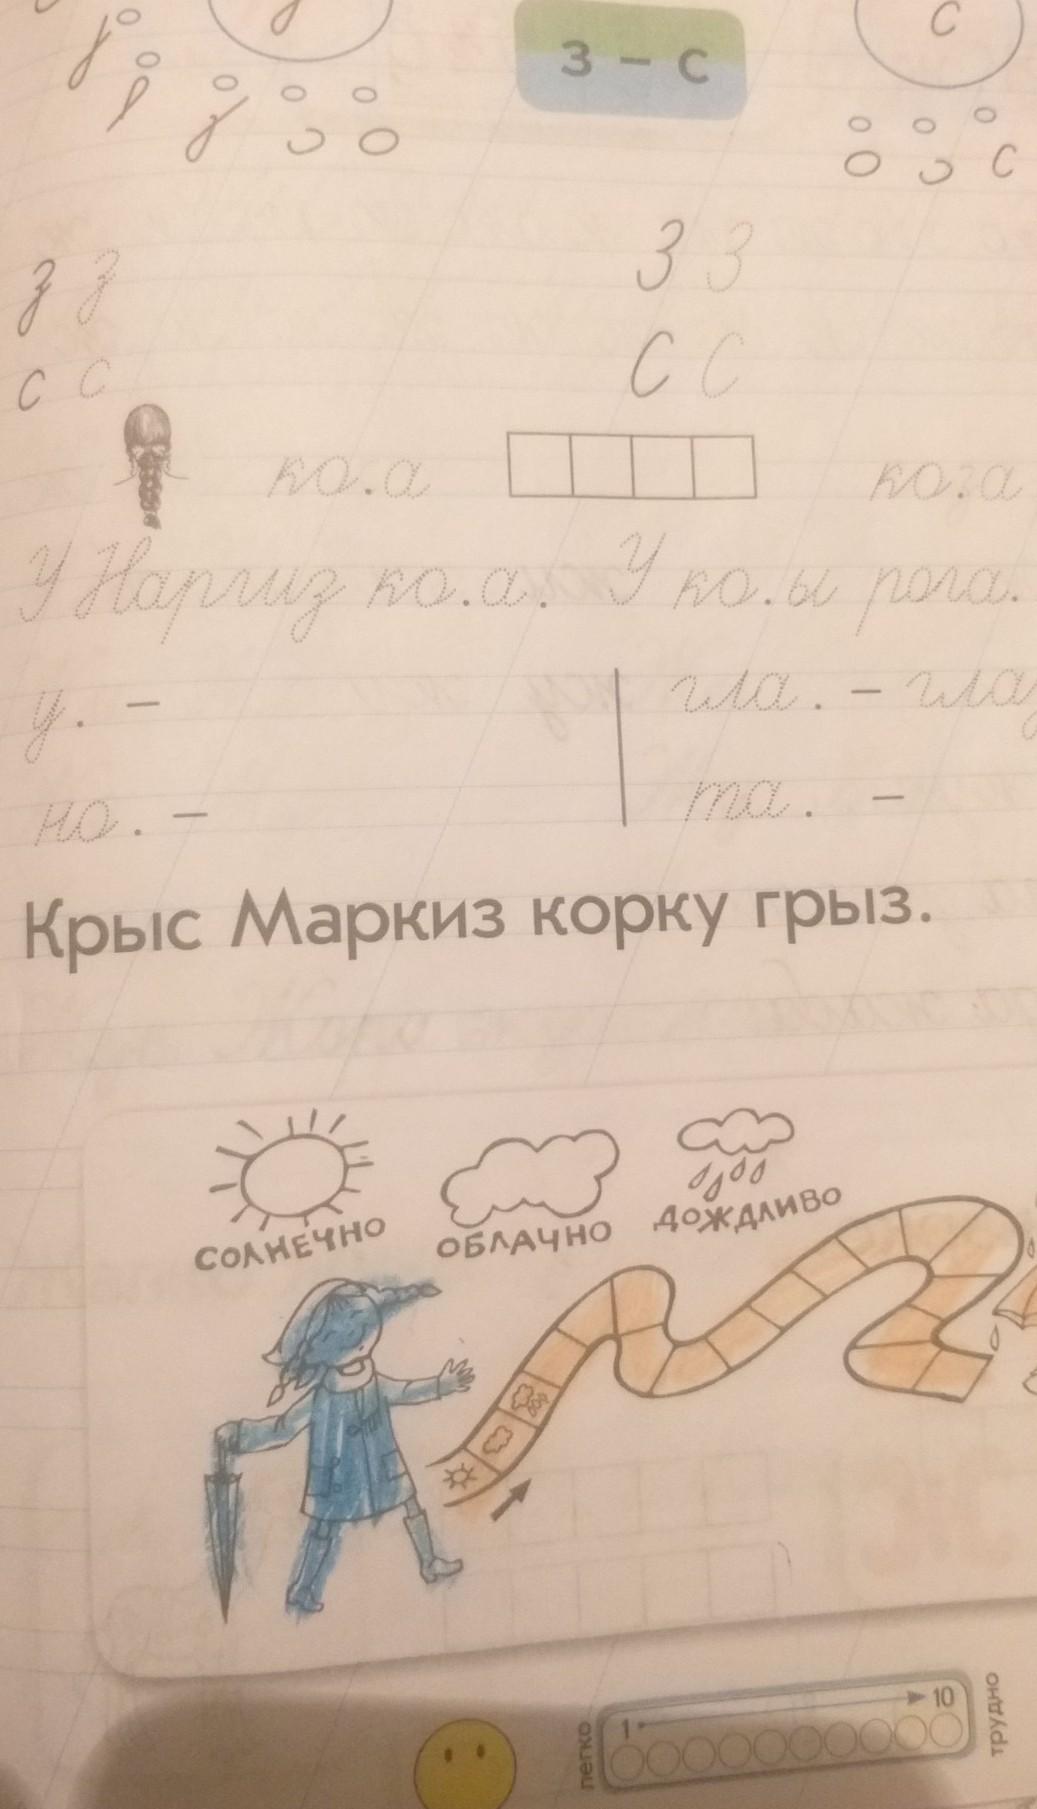 з – с
с
З З
з з
С С
с с
ко.а коза
У Наргиз ко.а. У ко.ы рога.
у. – гла. – глаз
но. – та. –
Крыс Маркиз корку грыз.
СОЛНЕЧНО ОБЛАЧНО ДОЖДЛИВО
легко 1 10 трудно